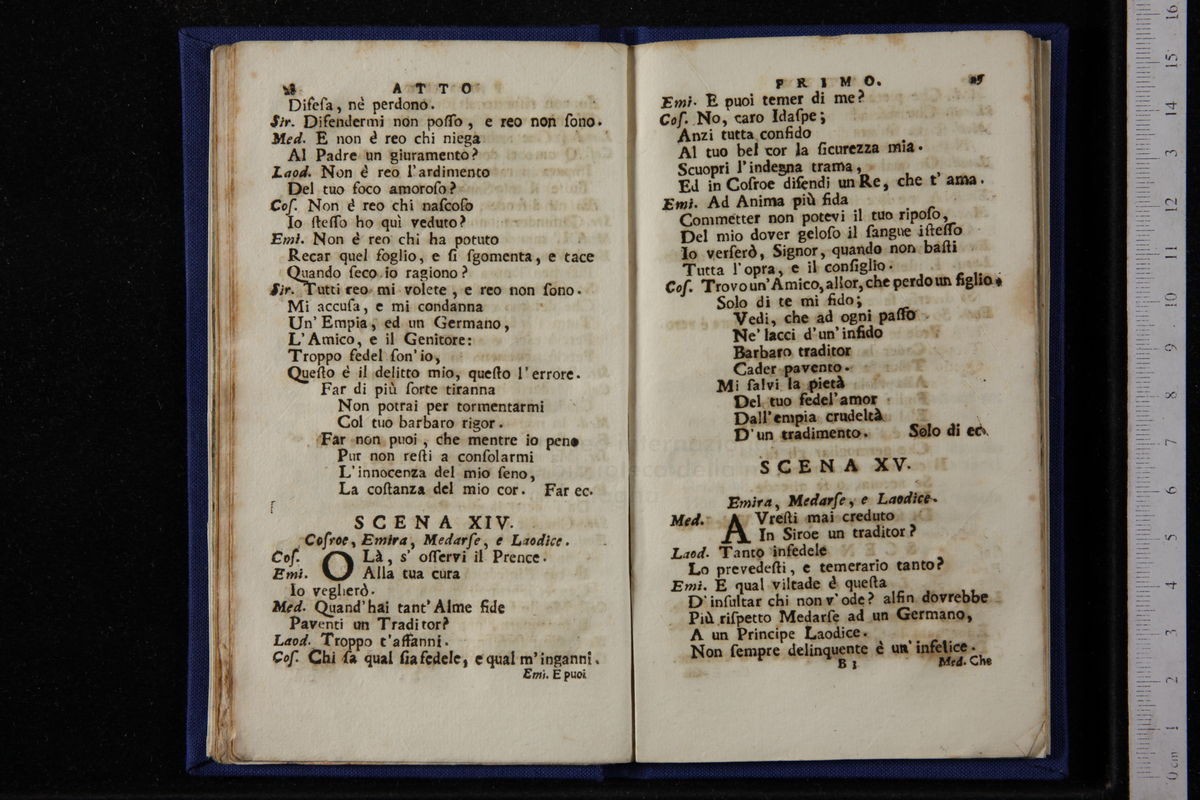 ATTO
Difeſa, nè perdono.
Sir. Difendermi non poſſo, e reo non ſono.
Med. E non è reo chi niega
Al Padre un giuramento?
Laod. Non è reo l'ardimento
Del tuo foco amoroſo?
Coſ. Non è reo chi naſcoſo
Io ſteſſo ho quì veduto?
Emi. Non è reo chi ha potuto
Recar quel foglio, e ſi ſgomenta, e tace
Quando ſeco io ragiono?
Sir. Tutti reo mi volete, e reo non ſono.
Mi accuſa, e mi condanna
Un' Empia, ed un Germano,
L'Amico, e il Genitore:
Troppo fedel ſon' io,
Queſto è il delitto mio, queſto l'errore.
Far di più ſorte tiranna
Non potrai per tormentarmi
Col tuo barbaro rigor.
Far non puoi, che mentre io peno
Pur non reſti a conſolarmi
L'innocenza del mio ſeno,
La coſtanza del mio cor. Far ec.
SCENA XIV.
Coſroe, Emira, Medarſe, e Laodice.
Coſ. OLà, s' oſſervi il Prence.
Emi. Alla tua cura
Io veglierò.
Med. Quand' hai tant' Alme fide
Paventi un Traditor?
Laod. Troppo t'affanni.
Coſ. Chi ſa qual ſia fedele, e qual m'inganni.
Emi. E puoi
PRIMO. 25
Emi. E puoi temer di me?
Coſ. No, caro Idaſpe;
Anzi tutta confido
Al tuo bel cor la ſicurezza mia.
Scuopri l'indegna trama,
Ed in Coſroe difendi un Re, che t' ama.
Emi. Ad Anima più fida
Commetter non potevi il tuo ripoſo,
Del mio dover geloſo il ſangue iſteſſo
Io verſerò, Signor, quando non baſti
Tutta l'opra, e il conſiglio.
Coſ. Trovo un' Amico, allor, che perdo un figlio.
Solo di te mi fido;
Vedi, che ad ogni paſſo
Ne' lacci d'un' infido
Barbaro traditor
Cader pavento.
Mi ſalvi la pietà
Del tuo fedel' amor
Dall' empia crudeltà
D'un tradimento. Solo di ec.
SCENA XV.
Emira, Medarſe, e Laodice.
Med. AVreſti mai creduto
In Siroe un traditor?
Laod. Tanto infedele
Lo prevedeſti, e temerario tanto?
Emi. E qual viltade è queſta
D'inſultar chi non v' ode? alfin dovrebbe
Più riſpetto Medarſe ad un Germano,
A un Principe Laodice.
Non ſempre delinquente è un' infelice.
B 3
Med. Che
0 cm 1 2 3 4 5 6 7 8 9 10 11 12 13 14 15 16